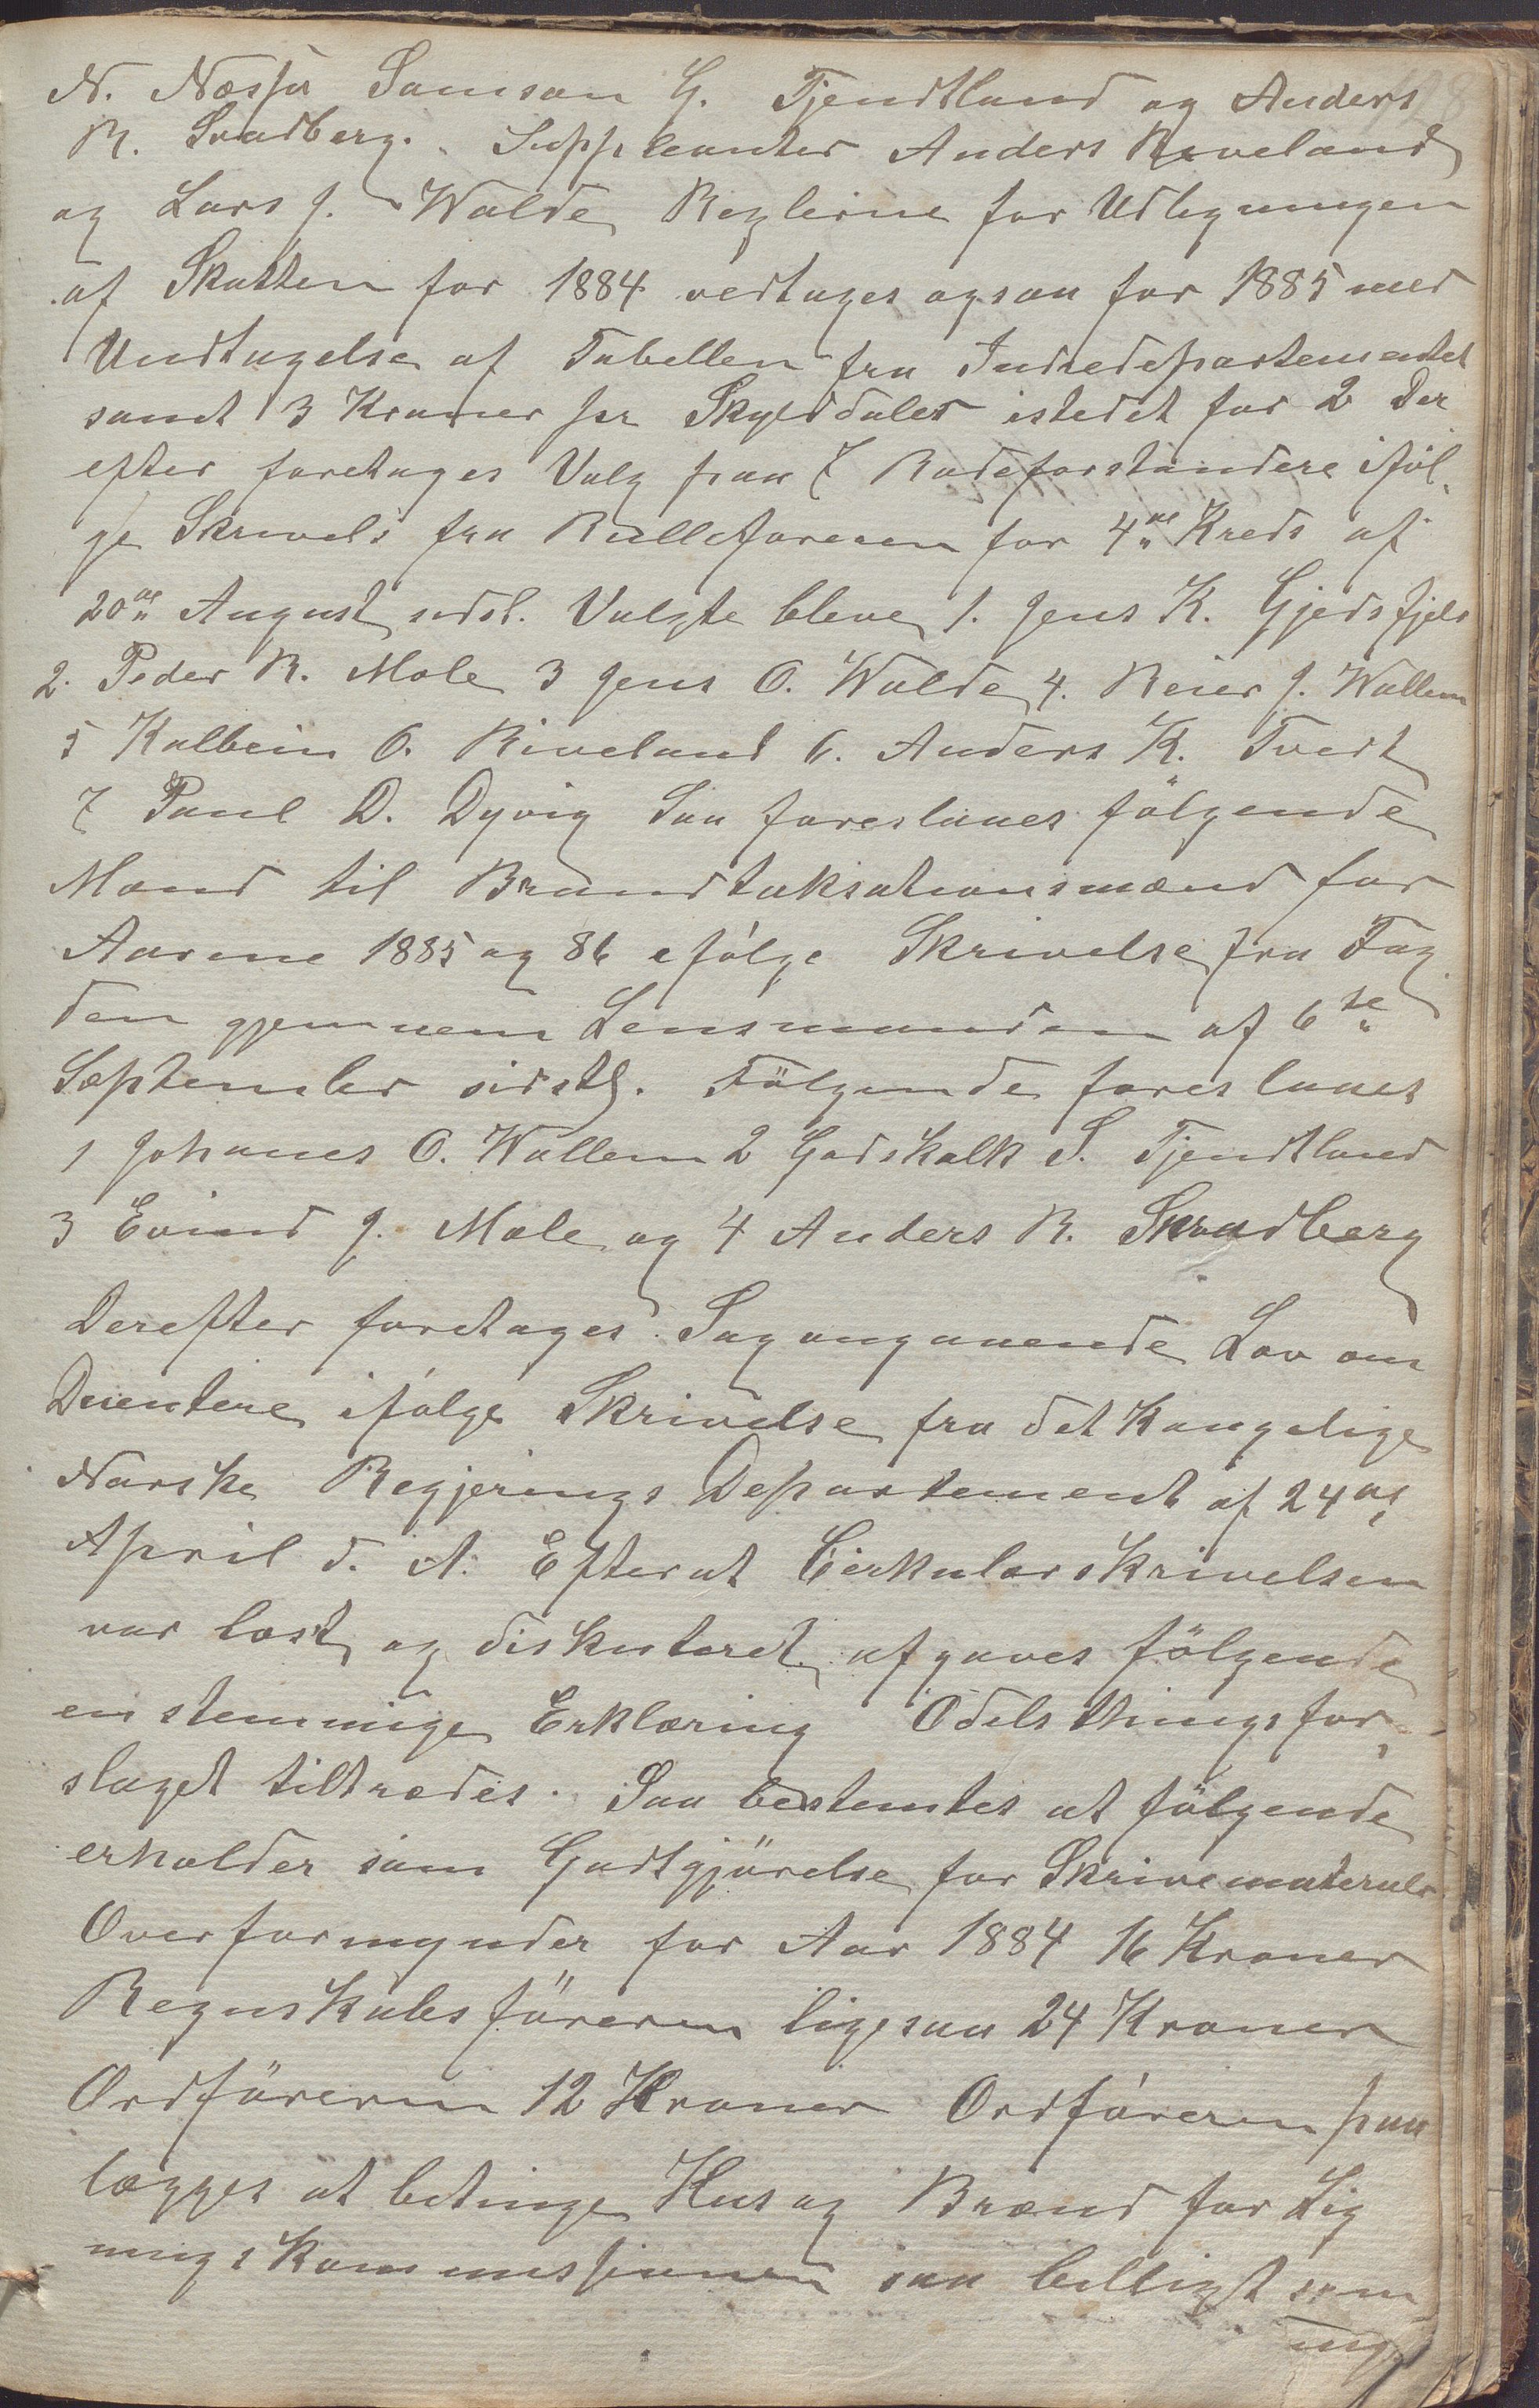 N. Næssa Samson G. Tjendtland og Anders
R. Svadberg. Suppleanter Anders Riveland
og Lars J. Walde Reglerne for Udlegningen
af Skatten for 1884 vedtages ogsaa for 1885 med
Undtagelse af Tabellen fra Indredepartementet
samt 3 Kroner pr Skylddaler istedet for 2 Der
efter foretages Valg paa 7 Rodeforstandere iføl„
ge Skrivels fra Rulleføreren for 4de Kreds af
20de August sidsl. Valgte bleve 1. Jens K. Gjedsfjeld
2. Peder R. Mæle 3 Jens O. Walde 4. Reier J. Wallem
5 Kolbein O. Riveland 6. Anders K. Tvedt
7 Paul D. Dyvig Saa foreslaaes følgende
Mænd til Brandtaksationsmænd for
Aarene 1885 og 86 efølge Skrivelse fra Fog
den gjennem Lensmanden af 6te
September sidstl. Følgende foreslaaes
1 Johanes O. Wallem 2 Godskalk S. Tjendtland
3 Evind J. Mæle og 4 Anders R. Svadberg
Derefter foretages Sag angaaende Lov om
Docentere ifølge Skrivelse fra det Kongelige
Norske Regjerings Departement af 24de
April d. A. Efterat Cirkulærskrivelsen
var læst og diskuteret afgaves følgende
enstemmige Erklæring Odelsthingsfor„
slaget tiltrædes. Saa bestemtes at følgende
erholder som Godtgjørelse for Skrivematerialer
Overformynder for Aar 1884 16 Kroner
Regnskabsføreren ligesaa 24 Kroner
Ordføreren 12 Kroner Ordføreren paa
lægges at betinge Hus og Brænd for Lig
nings Kommissionen saa billigst som
mg.